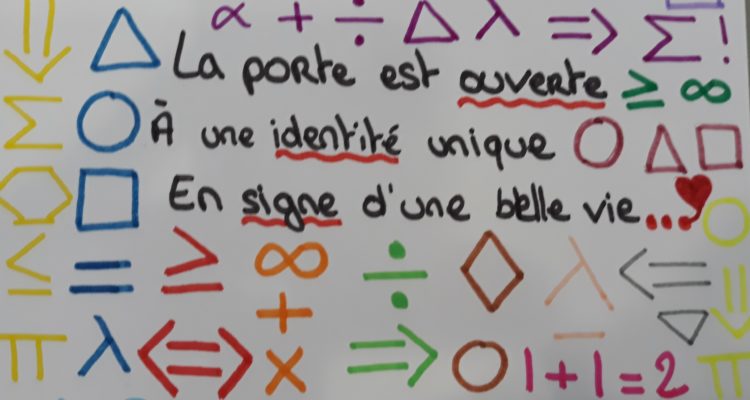 ∝ + ÷ △ λ ⇒ Σ !
La porte est ouverte ≥ ∞
À une identité unique ○ △ □
En signe d'une belle vie...♥
≤ = ≥ ∞ ÷ ◇ λ ⇐ ⇓
π λ ⇔ + × ⇒ ○ 1+1=2 π